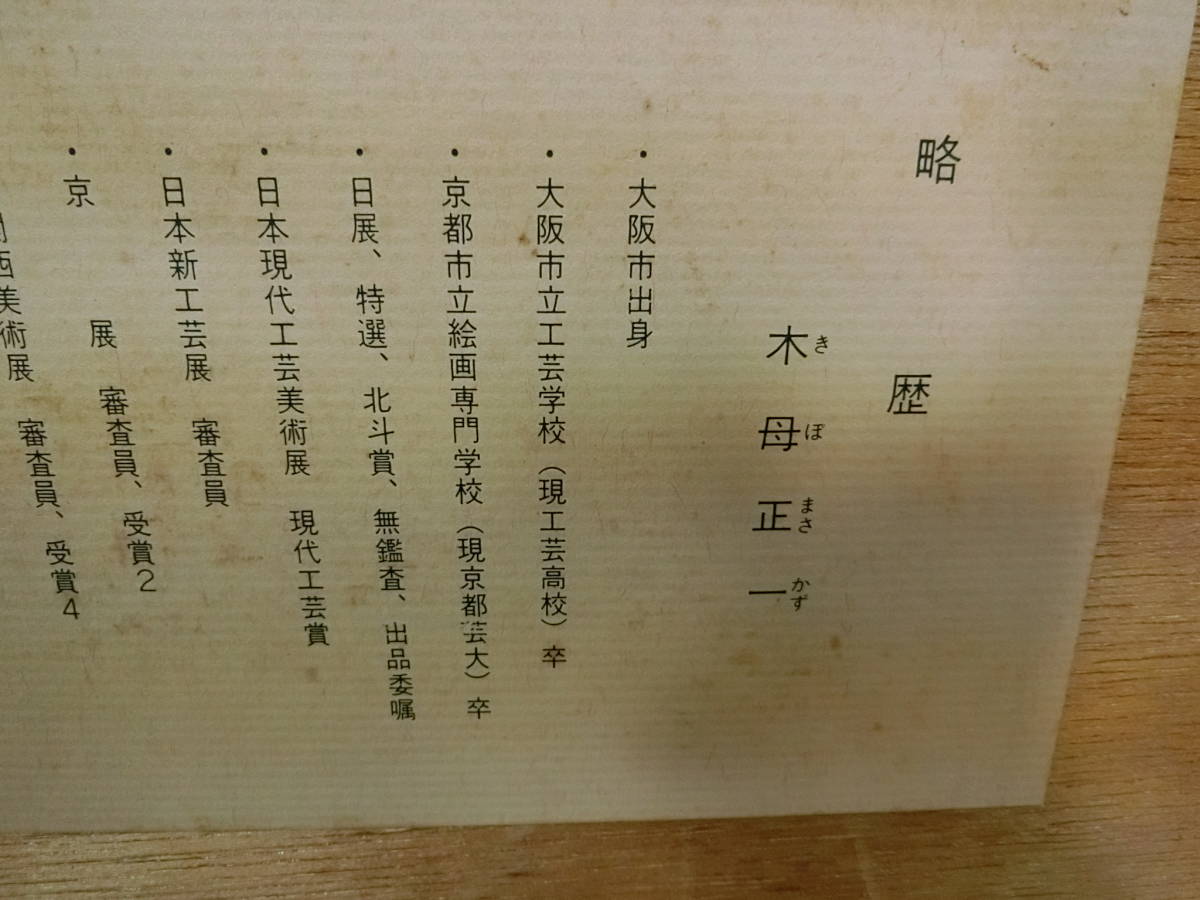 略歴
木母正一
きぼまさかず
・大阪市出身
・大阪市立工芸学校(現工芸高校)卒
・京都市立絵画専門学校(現京都芸大)卒
・日展、特選、北斗賞、無鑑査、出品委嘱
・日本現代工芸美術展 現代工芸賞
・日本新工芸展 審査員
・京 展 審査員、受賞2
西美術展 審査員、受賞4